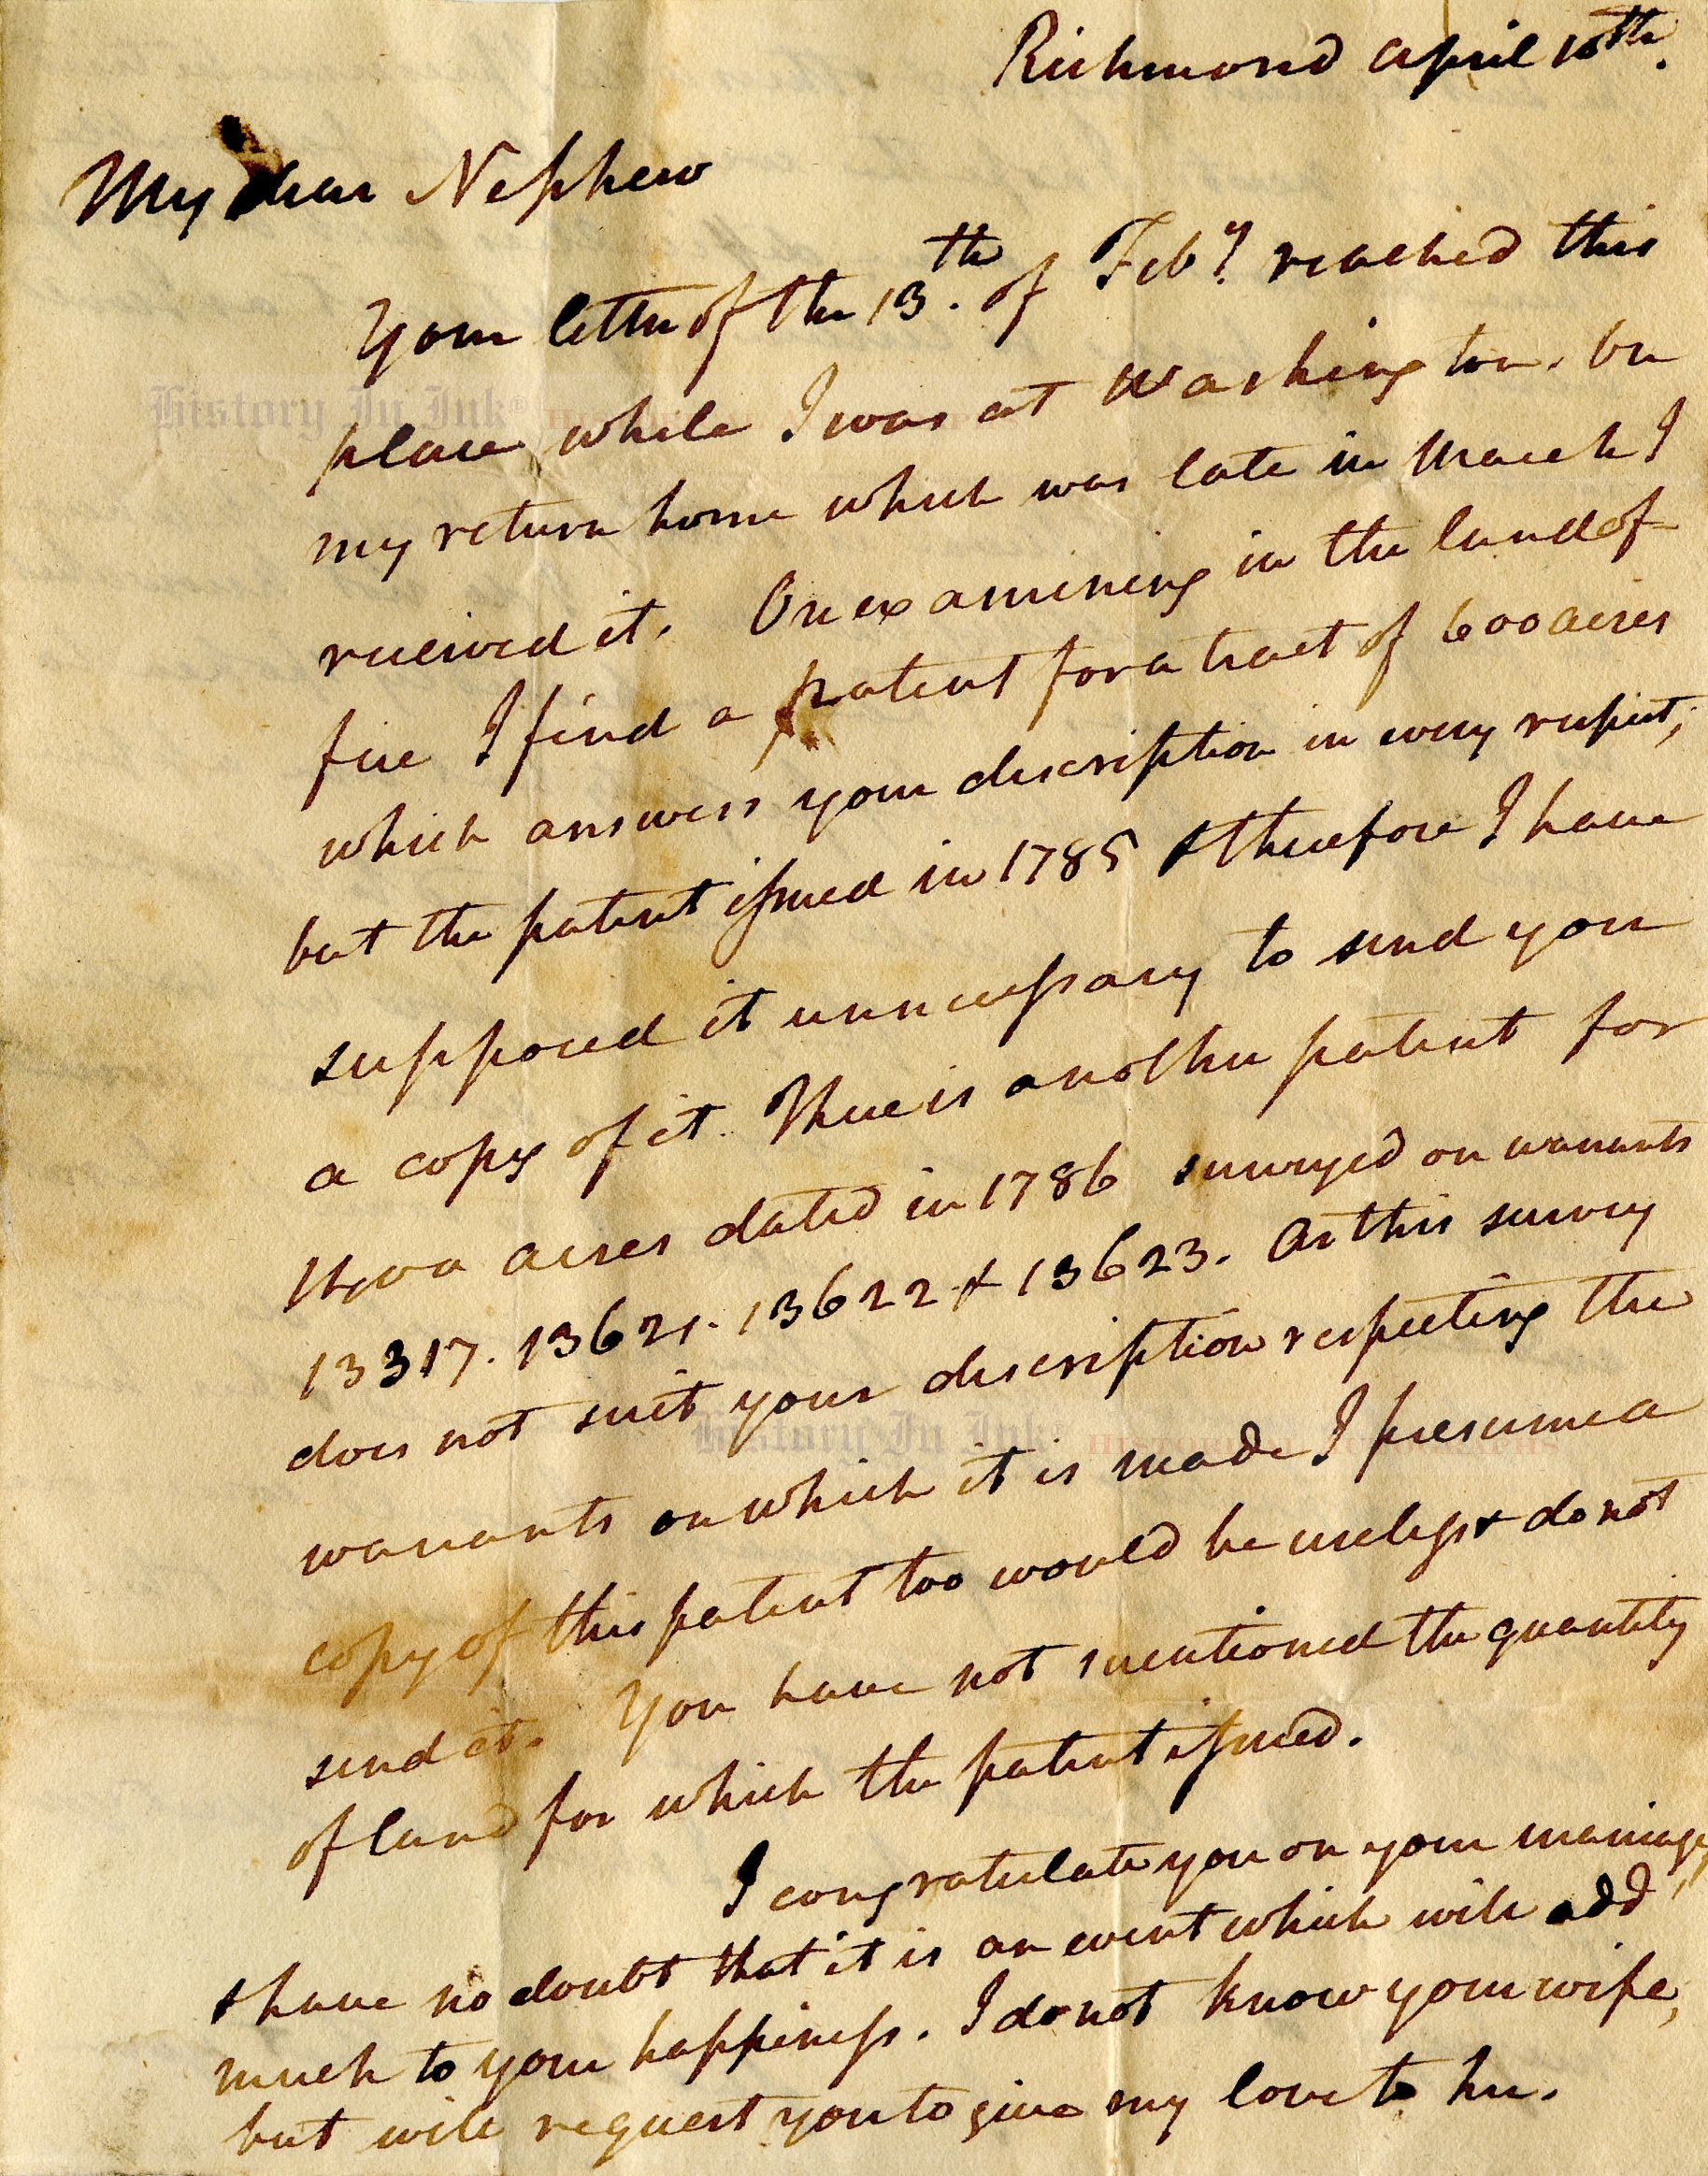 Richmond April 10th.
My dear Nephew
Your letter of the 13th. of Feby. reached this
place while I was at Washington. On
my return home which was late in March I
received it. On examining in the land of
fice I find a patent for a tract of 600 acres
which answers your description in every respect;
but the patent issued in 1785 & therefore I have
supposed it unnecessary to send you
a copy of it. There is another patent for
acres dated in 1786 surveyed on warrants
13317. 13621. 13622 & 13623. As this survey
does not suit your description respecting the
History In Ink
warrants on which it is made I presume a
copy of this patent too would be useless & do not
send it. You have not mentioned the quantity
of land for which the patent issued.
I congratulate you on your marriage,
& have no doubt that it is an event which will add
much to your happiness. I do not know your wife,
but will request you to give my love to her.
History In Ink®